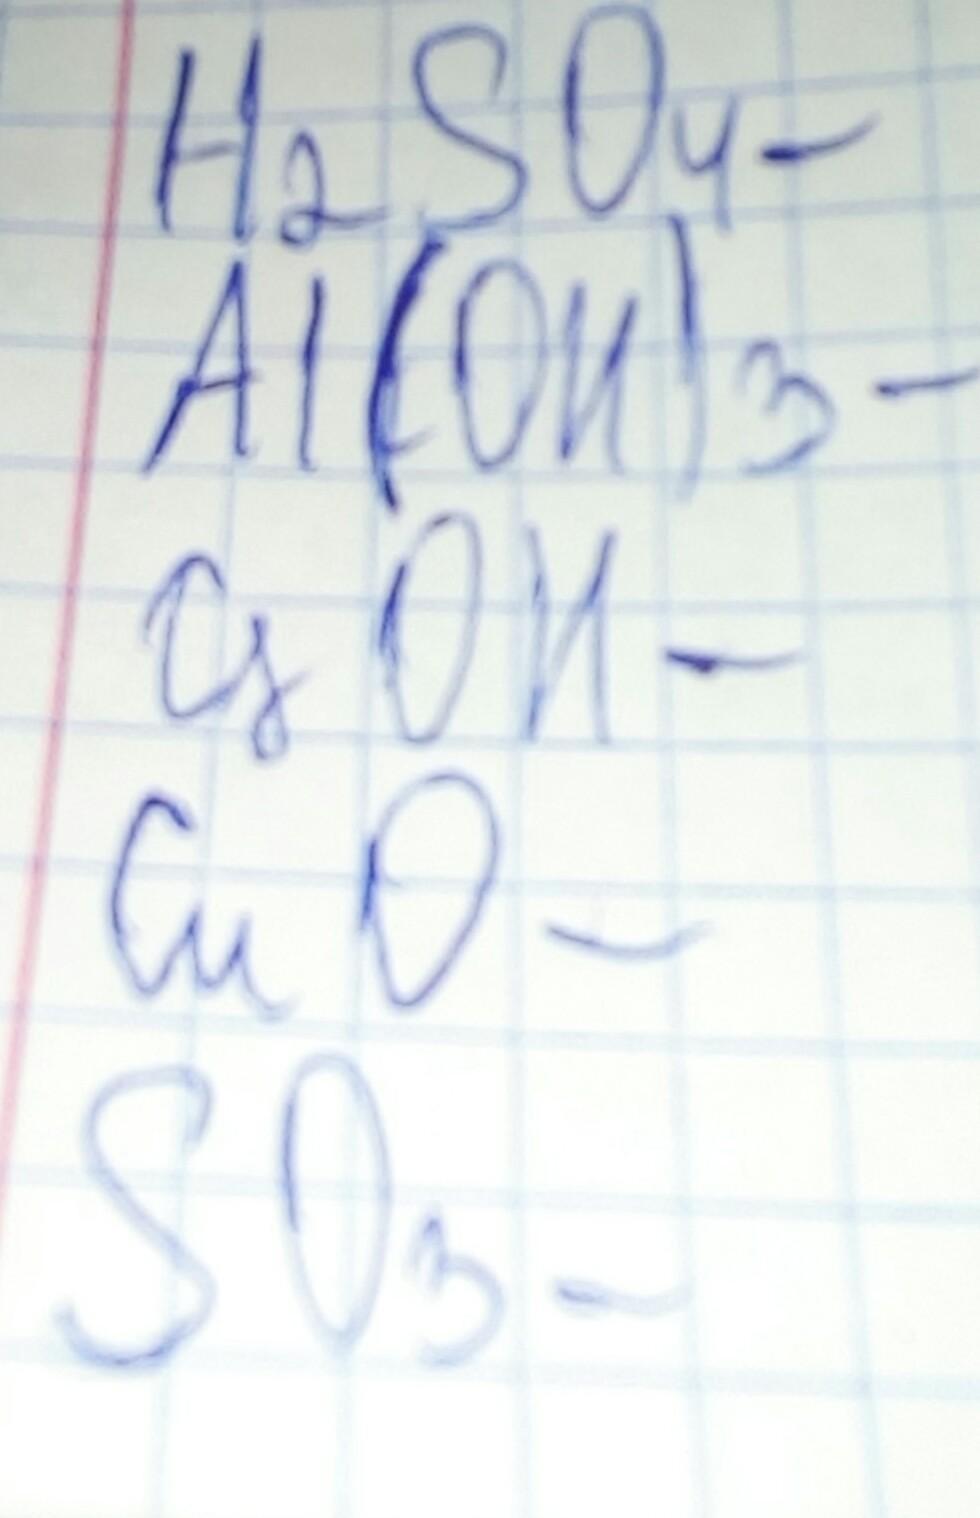 H₂SO₄-
Al(OH)₃-
CsOH-
CuO-
SO₃-